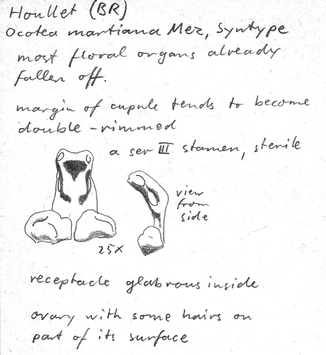 Houllet (BR)
Ocotea martiana Mez, Syntype
most floral organs already
fallen off.
margin of cupule tends to become
double-rimmed
a ser III stamen, sterile
view
from
side
25x
receptacle glabrous inside
ovary with some hairs on
part of its surface